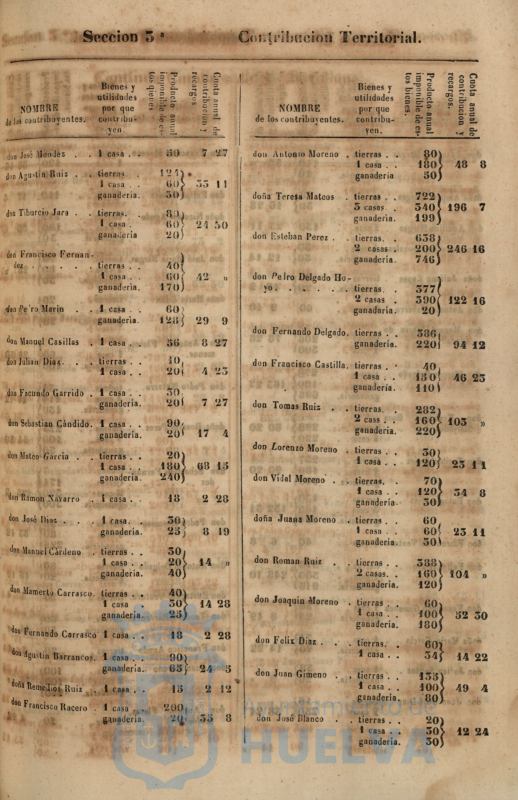 Seccion 3ª Contribucion Territorial.
NOMBRE de los contribuyentes. Bienes y utilidades por que contribuyen. Producto anual imponible de estos bienes. Cuota anual de contribucion y recargos.
don José Mendez . . 1 casa . . 30 7 27
don Agustin Ruiz . . tierras. 124
1 casa . . 60 35 11
ganaderia. 30
don Tiburcio Jara . . tierras. 80
1 casa . 60 24 30
ganaderia 20
don Francisco Fernan-
dez . . . . . tierras . . 40
1 casa . . 60 42 »
ganaderia. 170
don Pedro Marin . . 1 casa . . 60
ganaderia. 128 29 9
don Manuel Casillas . 1 casa . . 36 8 27
don Julian Diaz. . . tierras . . 10
1 casa . . 20 4 23
don Facundo Garrido . 1 casa . . 30
ganaderia. 20 7 27
don Sebastian Cándido. 1 casa . . 90
ganaderia. 20 17 4
don Mateo Garcia . . tierras . . 20
1 casa . . 180 68 15
ganaderia. 240
don Ramon Navarro . 1 casa . . 18 2 28
don José Diaz . . . 1 casa. . 30
ganaderia. 25 8 19
don Manuel Cárdeno . tierras . . 30
1 casa . . 20 14 »
ganaderia. 40
don Mamerto Carrasco. tierras . . 40
1 casa . 30 14 28
ganaderia. 25
don Fernando Carrasco 1 casa . . 18 2 28
don Agustin Barrancos. 1 casa . . 90
ganaderia. 65 24 5
doña Remedios Ruiz . 1 casa . . 15 2 12
don Francisco Racero . 1 casa . . 200
ganaderia. 20 35 8
NOMBRE de los contribuyentes. Bienes y utilidades por que contribuyen. Producto anual imponible de estos bienes. Cuota anual de contribucion y recargos.
don Antonio Moreno . tierras . . 80
1 casa . . 180 48 8
ganaderia 50
doña Teresa Mateos . tierras . . 722
3 casas . 340 196 7
ganaderia. 199
don Esteban Perez . . tierras. . 638
2 casas . 200 246 16
ganaderia. 746
don Pedro Delgado Ho-
yo. . . . . . tierras. . 377
2 casas . 390 122 16
ganadaria. 20
don Fernando Delgado. tierras . . 386
ganaderia. 220 94 12
don Francisco Castilla. tierras . . 40
1 casa . . 130 46 25
ganaderia. 110
don Tomas Ruiz . . tierras. . 282
2 cass . . 160 103 »
ganaderia. 220
don Lorenzo Moreno . tierras . . 30
1 casa . . 120 23 11
don Vidal Moreno . . tierras. . 70
1 casa . . 120 34 8
ganaderia. 30
doña Juana Moreno . tierras . . 60
1 casa . . 60 23 11
ganaderia. 30
don Roman Ruiz . . tierras . . 388
2 casas. . 160 104 »
ganaderia. 120
don Joaquin Moreno . tierras . . 60
1 casa . . 100 52 30
ganaderia. 180
don Felix Diaz . . . tierras. . 60
1 casa . . 34 14 22
don Juan Gimeno . . tierras . . 155
1 casa . . 100 49 4
ganaderia. 80
don José Blanco . . tierras . . 20
1 casa . . 30 12 24
ganaderia. 30
ayuntamiento de
HUELVA